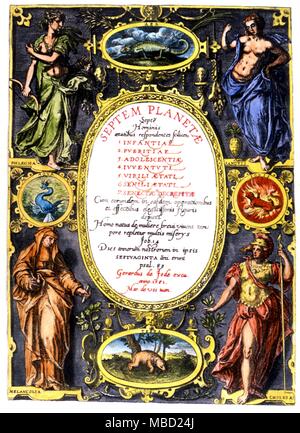 SEPTEM PLANETÆ
Septē
Hominis
ætatibus respondentes
1 INFANTIÆ
2 PVERITIÆ
3 ADOLESCENTIÆ
4 IVVENTVTI
5 VIRILI ÆTATI
6 SENILI ÆTATI
7 SENECTÆ DECREPITÆ
Cum earundem in easdem operationibus
et effectibus elegantissimis figuris
depicti
Homo natus de muliere brevi vivens tem
pore repletur multis miserijs
Job. 14
Dies annorum nostrorum in ipsis
SEPTVAGINTA anni erunt
psal. 89
Gerardus de Jode excu.
anno 1581.
Mar. de Vos inven.
PHLEGMA
SANGVIS
MELANCOLIA
CHOLERA
alamy
MBD24J